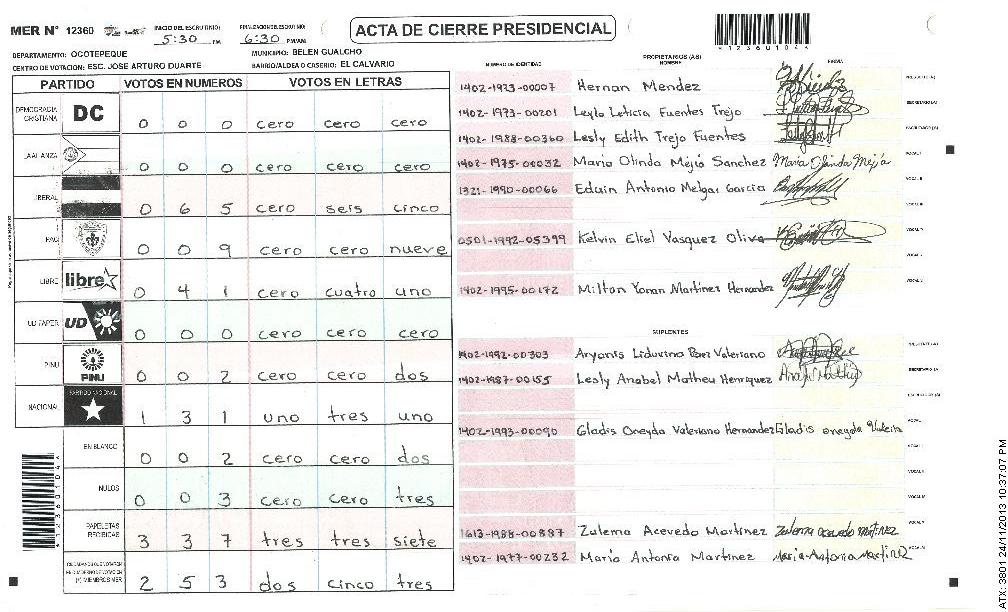 MER N° 12360 INICIO DEL ESCRUTINIO: 5:30 PM FINALIZACION DEL ESCRUTINIO: 6:30 PM/AM ACTA DE CIERRE PRESIDENCIAL
DEPARTAMENTO: OCOTEPEQUE MUNICIPIO: BELEN GUALCHO
CENTRO DE VOTACION: ESC. JOSE ARTURO DUARTE BARRIO/ALDEA O CASERIO: EL CALVARIO
PARTIDO VOTOS EN NUMEROS VOTOS EN LETRAS
DEMOCRACIA CRISTIANA DC 0 0 0 cero cero cero
LA ALIANZA 0 0 0 cero cero cero
LIBERAL 0 6 5 cero seis cinco
PAC 0 0 9 cero cero nueve
LIBRE libre 0 4 1 cero cuatro uno
UD FAPER UD 0 0 0 cero cero cero
PINU PINU 0 0 2 cero cero dos
NACIONAL PARTIDO NACIONAL 1 3 1 uno tres uno
EN BLANCO 0 0 2 cero cero dos
NULOS 0 0 3 cero cero tres
PAPELETAS RECIBIDAS 3 3 7 tres tres siete
CIUDADANOS QUE VOTARON EN CUADERNO DE VOTACION (+) MIEMBROS MER 2 5 3 dos cinco tres
NUMERO DE IDENTIDAD PROPIETARIOS (AS) NOMBRE FIRMA
1402-1923-00007 Hernan Mendez
1402-1973-00201 Leyla Leticia Fuentes Trejo
1402-1988-00360 Lesly Edith Trejo Fuentes
1402-1975-00032 Maria Olinda Mejia Sanchez Maria Olinda Mejia
1321-1990-00066 Eduin Antonio Melgar Garcia
0501-1992-05399 Kelvin Eliel Vasquez Oliva
1402-1995-00172 Milton Yonan Martinez Hernandez
SUPLENTES
1402-1992-00303 Aryanis Liduvina Perez Valeriano
1402-1987-00155 Lesly Anabel Matheu Henriquez
1402-1993-00090 Gladis Oneyda Valeriano Hernandez Gladis oneyda
1613-1988-00887 Zulema Acevedo Martinez Zulema acevedo Martinez
1402-1977-00232 Maria Antonia Martinez Maria Antonia Martinez
ATX: 3801 24/11/2013 10:37:07 PM